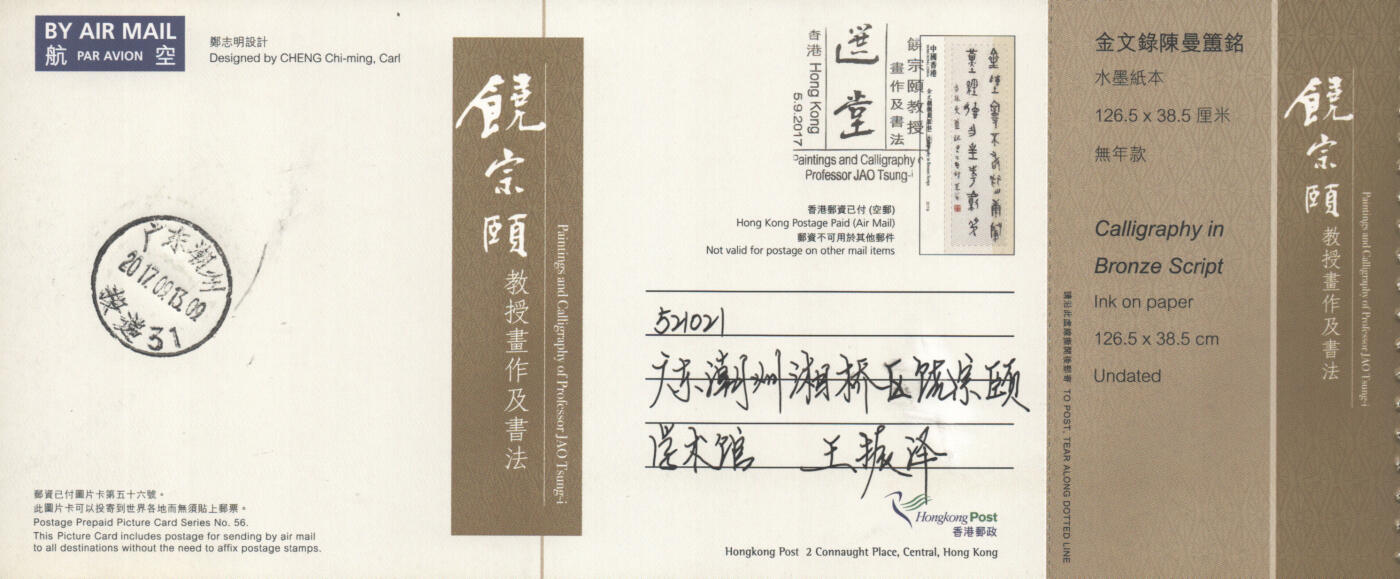 BY AIR MAIL
航 PAR AVION 空
鄭志明設計
Designed by CHENG Chi-ming, Carl
广东潮州
2017.09.13.09
31
郵資已付圖片卡第五十六號。
此圖片卡可以投寄到世界各地而無須貼上郵票。
Postage Prepaid Picture Card Series No. 56.
This Picture Card includes postage for sending by air mail
to all destinations without the need to affix postage stamps.
饒宗頤
教授畫作及書法
Paintings and Calligraphy of Professor JAO Tsung-i
香港 Hong Kong
5.9.2017
選堂
饒宗頤教授
畫作及書法
Paintings and Calligraphy
Professor JAO Tsung-i
中國香港
香港郵資已付 (空郵)
Hong Kong Postage Paid (Air Mail)
郵資不可用於其他郵件
Not valid for postage on other mail items
521021
广东潮州湘桥区饶宗颐
学术馆 王振泽
Hongkong Post
香港郵政
Hongkong Post 2 Connaught Place, Central, Hong Kong
TO POST, TEAR ALONG DOTTED LINE
金文錄陳曼簠銘
水墨紙本
126.5 x 38.5 厘米
無年款
Calligraphy in
Bronze Script
Ink on paper
126.5 x 38.5 cm
Undated
饒宗頤
教授畫作及書法
Paintings and Calligraphy of Professor JAO Tsung-i